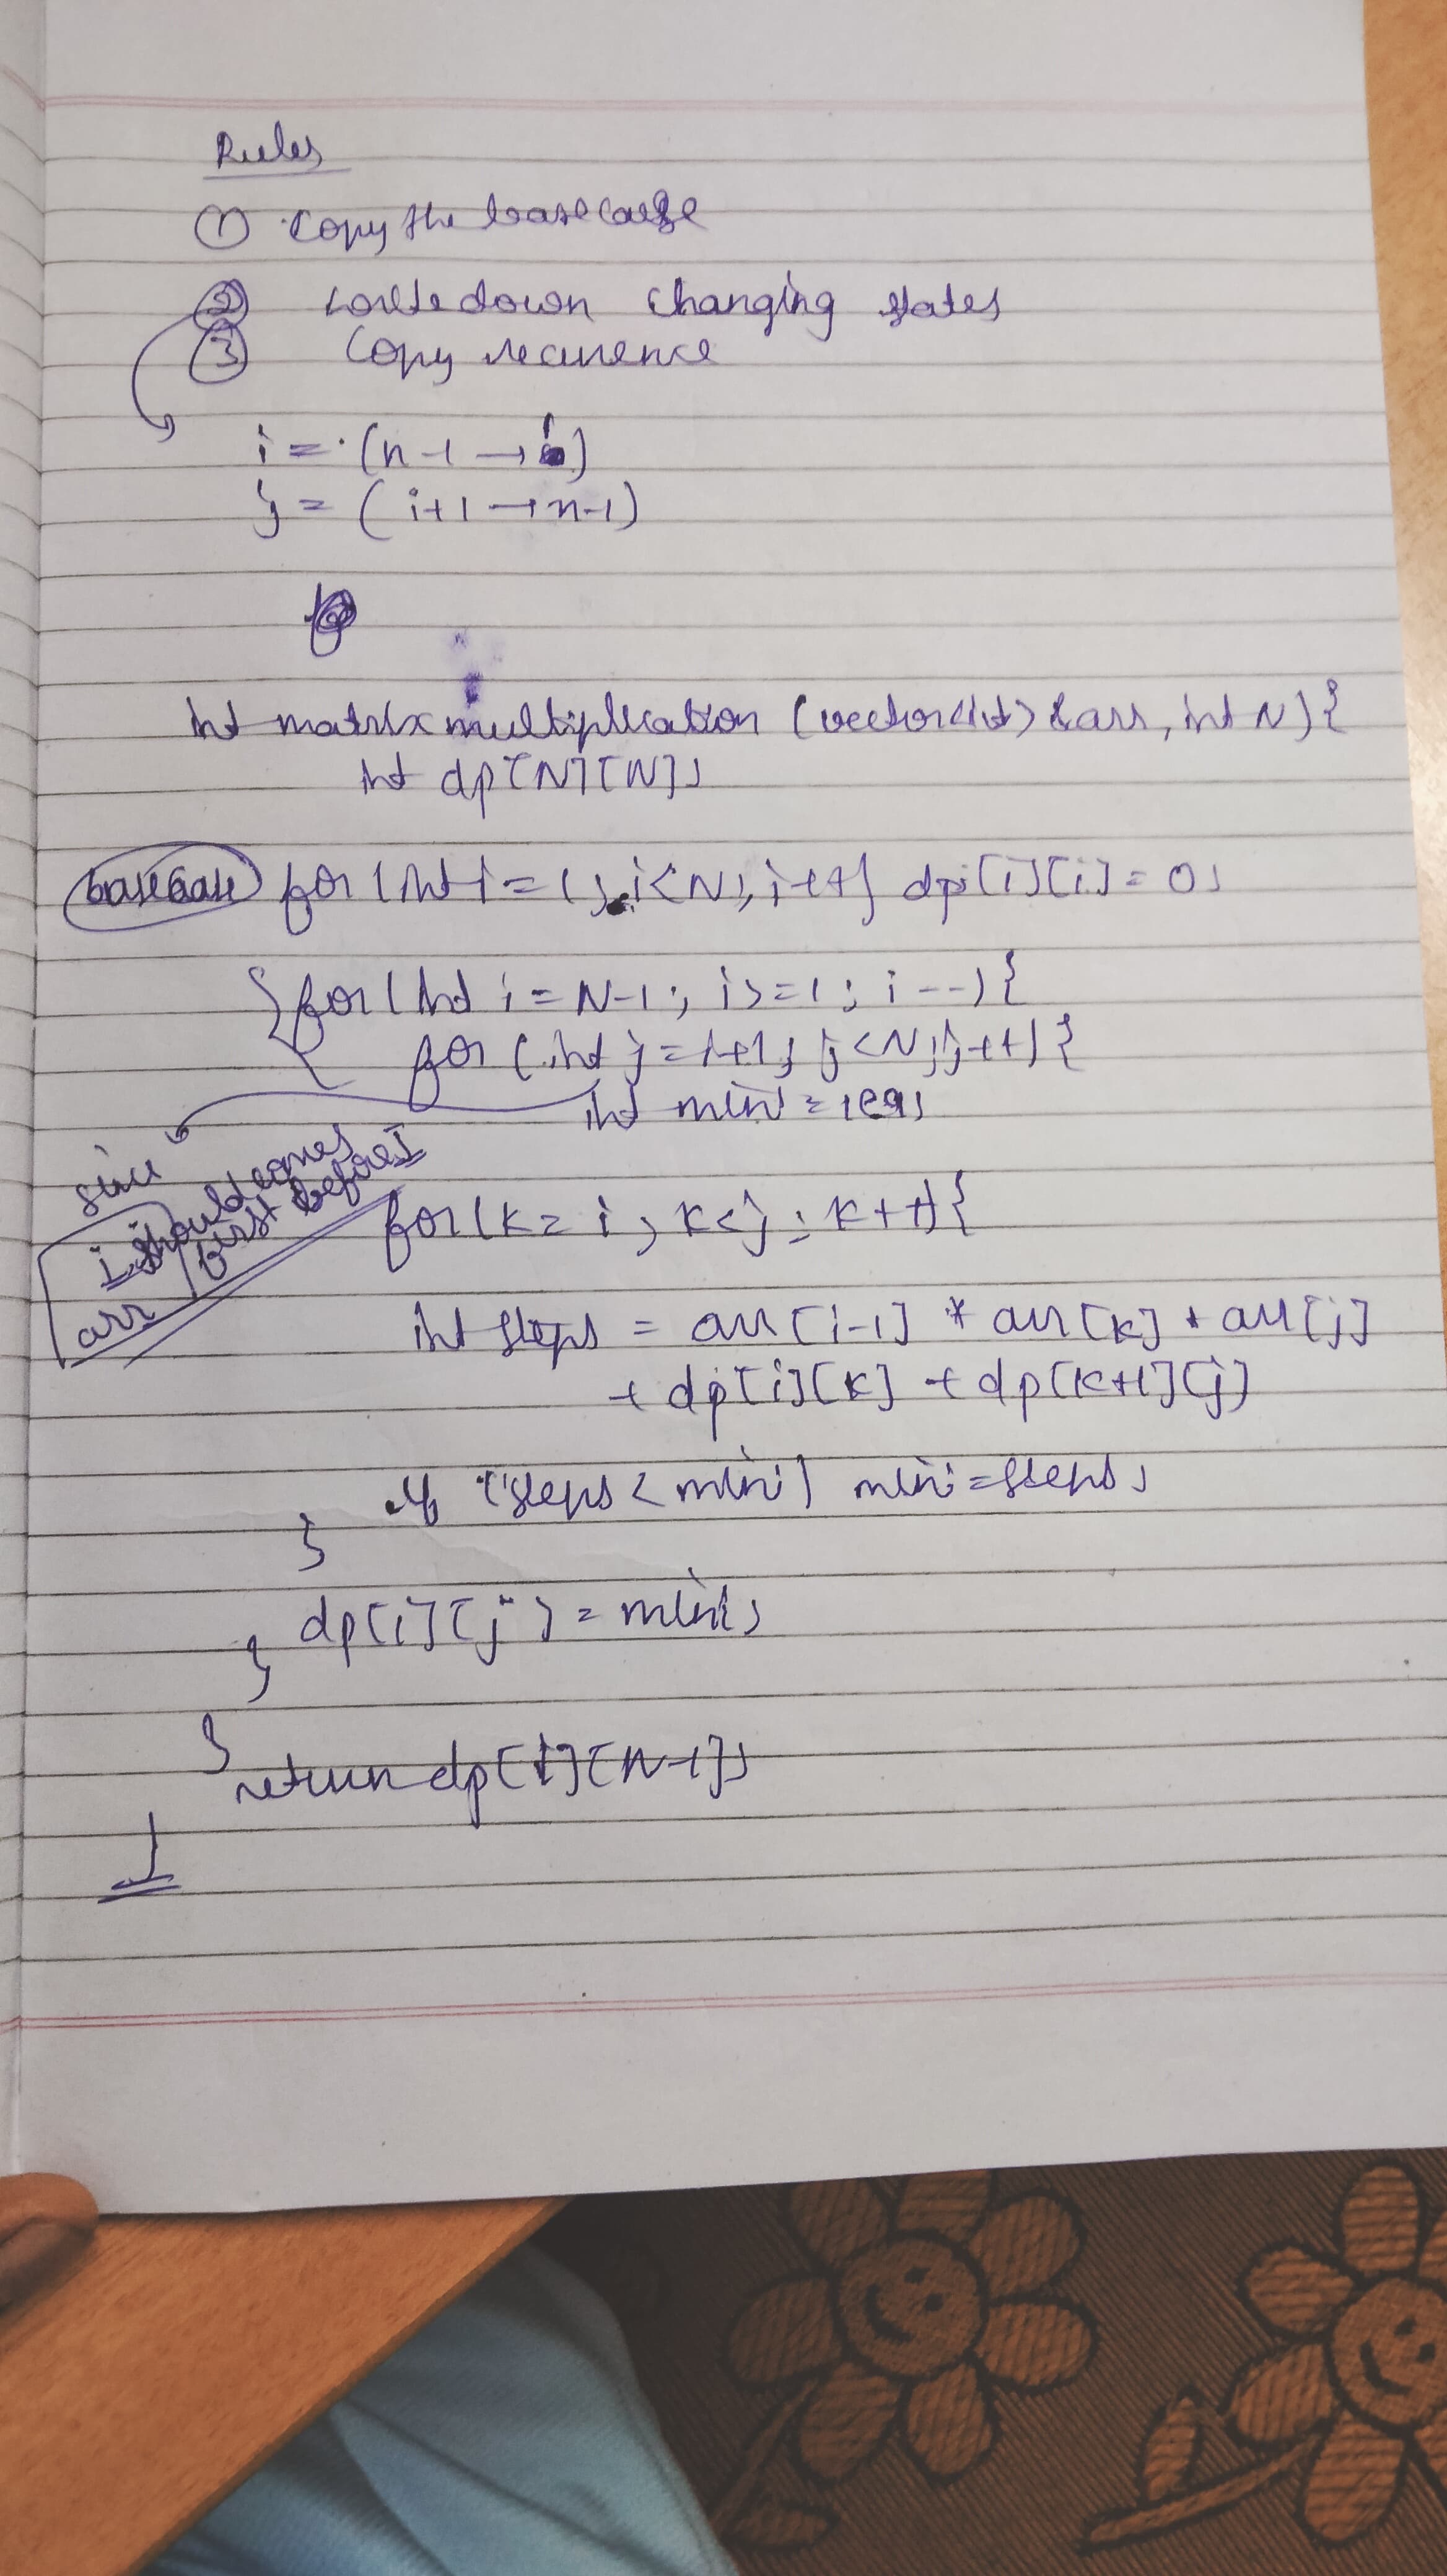 Rules
① Copy the base case
② write down changing states
③ Copy recurrence
i = (n-1 → 1)
j = (i+1 → n-1)
int matrix multiplication (vector<int> &arr, int N) {
int dp[N][N];
base case for (int i = 1; i<N; i++) dp[i][i] = 0;
for (int i = N-1; i>=1; i--) {
for (int j = i+1; j<N; j++) {
int mini = 1e9;
since
i should comes
first before j
arr
for (k = i; k<j; k++) {
int steps = arr[i-1] * arr[k] * arr[j]
+ dp[i][k] + dp[k+1][j]
if (steps < mini) mini = steps;
}
dp[i][j] = mini;
}
}
return dp[1][N-1];
}